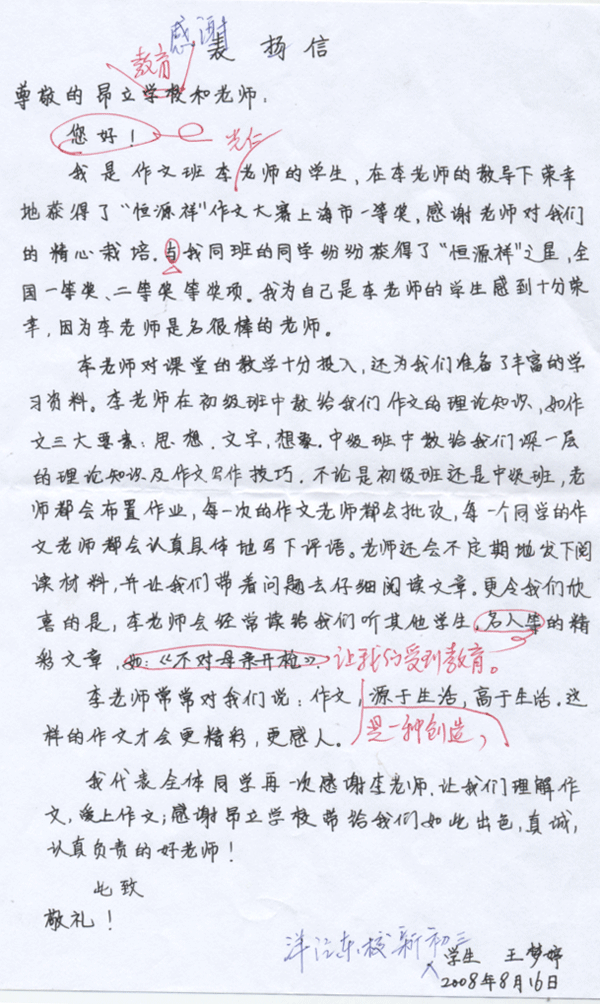 感谢
表 扬 信
教育
尊敬的昂立学校和老师:
您好!
光仁
我是作文班李老师的学生,在李老师的教导下荣幸
地获得了“恒源祥”作文大赛上海市一等奖,感谢老师对我们
的精心栽培。与我同班的同学纷纷获得了“恒源祥”之星,全
国一等奖、二等奖等奖项。我为自己是李老师的学生感到十分荣
幸,因为李老师是名很棒的老师。
李老师对课堂的教学十分投入,还为我们准备了丰富的学
习资料。李老师在初级班中教给我们作文的理论知识,如作
文三大要素:思想,文字,想象。中级班中教给我们深一层
的理论知识及作文写作技巧。不论是初级班还是中级班,老
师都会布置作业,每一次的作文老师都会批改,每一个同学的作
文老师都会认真具体地写下评语。老师还会不定期地发下阅
读材料,并让我们带着问题去仔细阅读文章。更令我们欣
喜的是,李老师会经常读给我们听其他学生,名人等的精
彩文章,如:《不对母亲开枪》.让我们受到教育。
李老师常常对我们说:作文,源于生活,高于生活。这
样的作文才会更精彩,更感人。是一种创造,
我代表全体同学再一次感谢李老师,让我们理解作
文,爱上作文;感谢昂立学校带给我们如此出色,真诚,
认真负责的好老师!
此致
敬礼!
洋泾东校新初三
学生 王梦婷
2008年8月16日